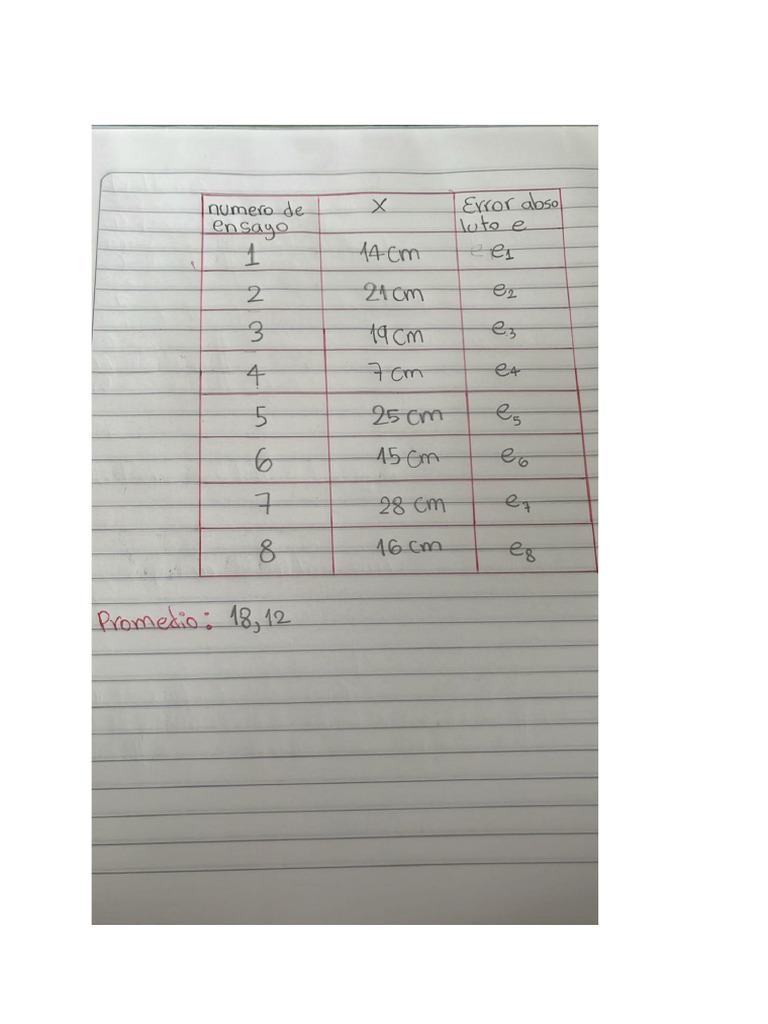 numero de ensayo X Error abso
luto e
1 14 cm e1
2 21 cm e2
3 19 cm e3
4 7 cm e4
5 25 cm e5
6 15 cm e6
7 28 cm e7
8 16 cm e8
Promedio: 18,12